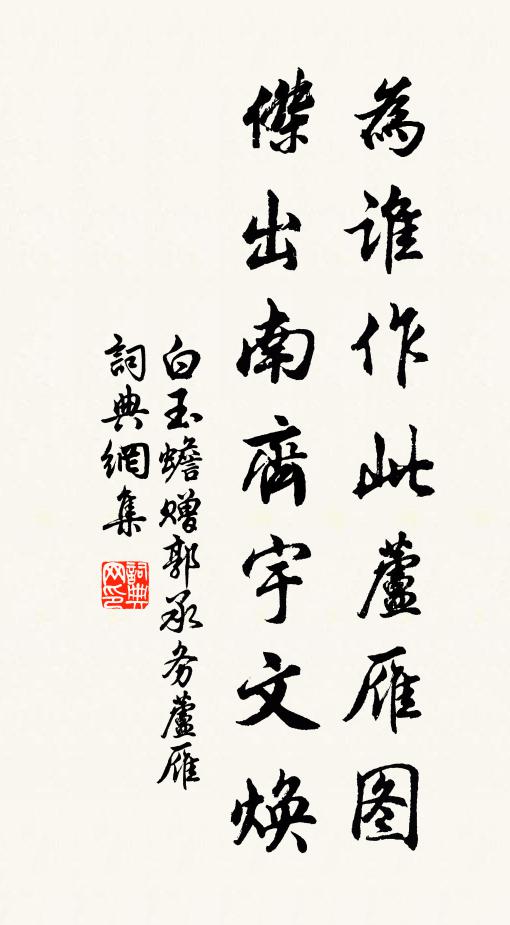 為誰作此蘆雁图
傑出南齊宇文焕
白玉蟾赠郭承务蘆雁
詞典網集
詞典网印